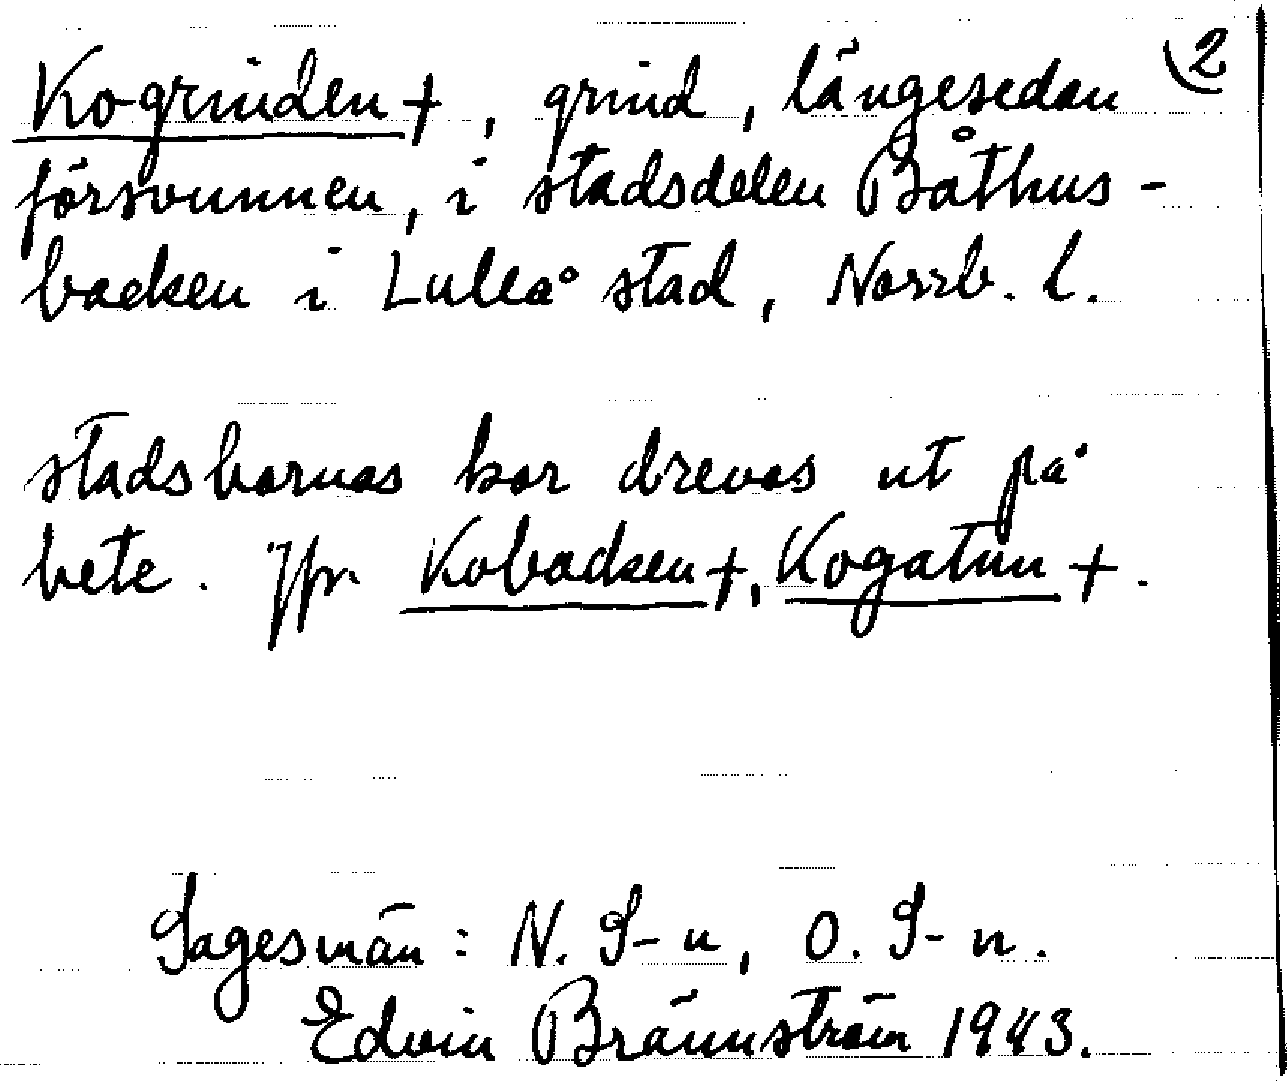 Kogrinden +, grind, längesedan 2
försvunnen, i stadsdelen Båthus-
backen i Luleå stad, Norrb. l.
stadsbornas kor drevos ut på
bete. Jfr. Kobacken +, Kogatan +.
Sagesmän: N. S-n, O. S-n.
Edvin Brännström 1943.